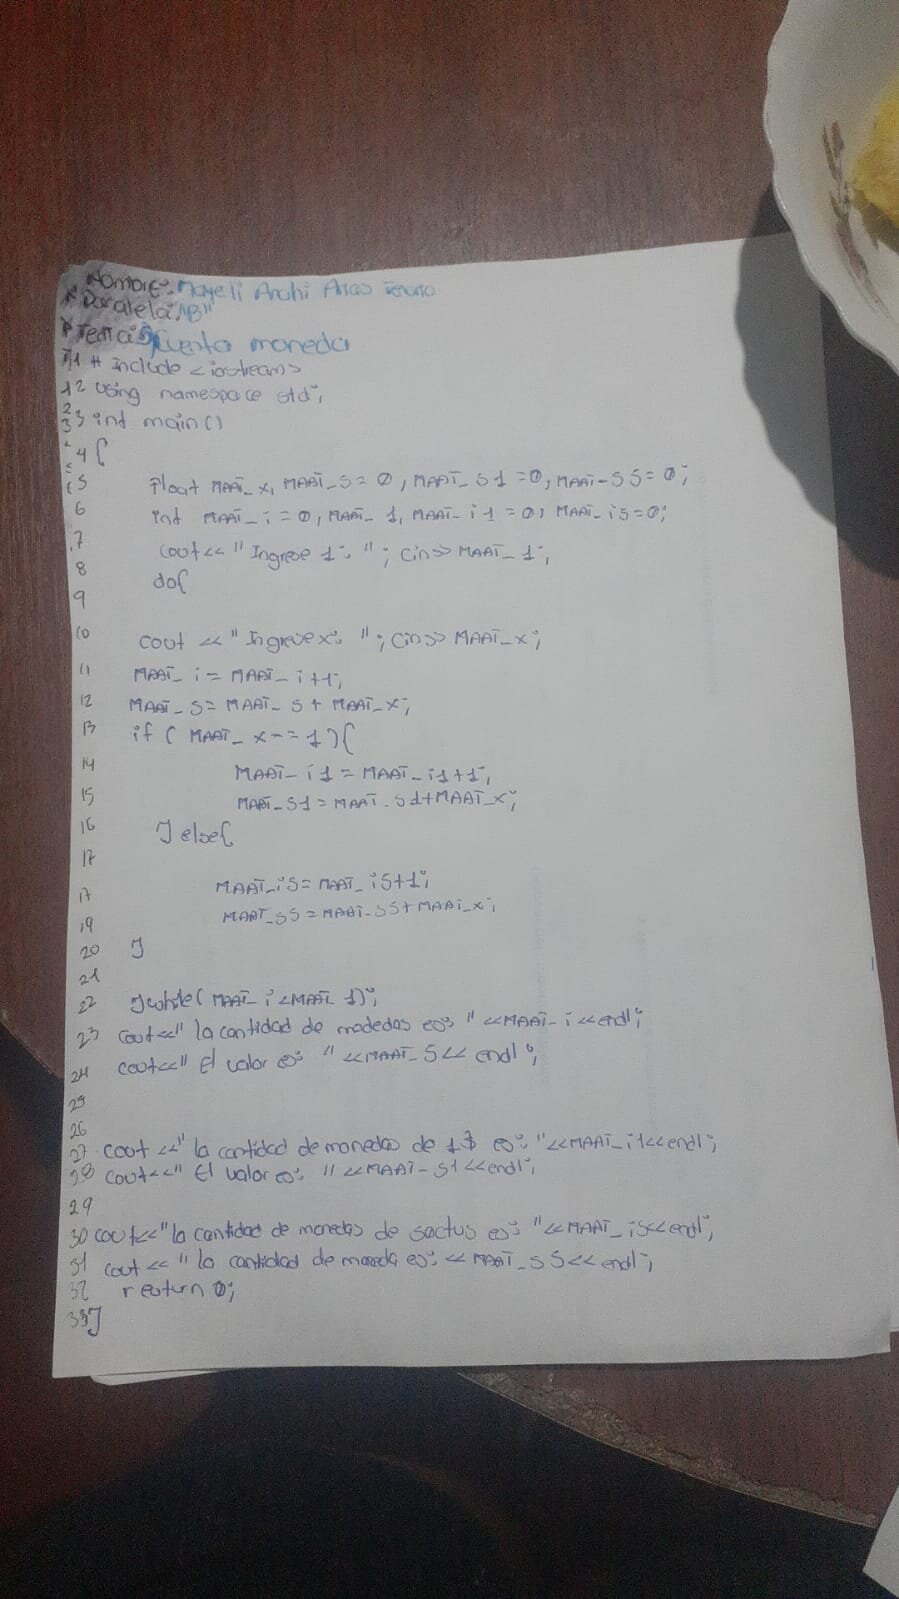 Nombre: Mayeli Anahi Arias
Paralela: "B"
Tema: Cuenta moneda
1 # include <iostream>
2 using namespace std;
3 int main()
4 {
5 float MAAT_x, MAAT_s = 0, MAAT_s1 = 0, MAAT_ss = 0;
6 int MAAT_i = 0, MAAT_1, MAAT_i1 = 0, MAAT_is = 0;
7 cout << "Ingrese 1: "; cin >> MAAT_1;
8 do{
9
10 cout << "Ingrese x: "; cin >> MAAT_x;
11 MAAT_i = MAAT_i+1;
12 MAAT_s = MAAT_s + MAAT_x;
13 if ( MAAT_x == 1 ){
14 MAAT_i1 = MAAT_i1+1;
15 MAAT_s1 = MAAT_s1+MAAT_x;
16 } else{
17
17 MAAT_is = MAAT_is+1;
19 MAAT_ss = MAAT_ss+MAAT_x;
20 }
21
22 }while( MAAT_i <MAAT_1);
23 cout<<" la cantidad de madedas es: " <<MAAT_i<<endl;
24 cout<<" El valor es: " <<MAAT_s<< endl;
25
26
27 cout <<" la cantidad de monedas de 1$ es: "<<MAAT_i1<<endl;
28 cout<<" El valor es: " <<MAAT_s1<<endl;
29
30 cout<<"la cantidad de monedas de sactus es: "<<MAAT_is<<endl;
31 cout << "la cantidad de moneda es: << MAAT_ss<<endl;
32 reoturn 0;
33}